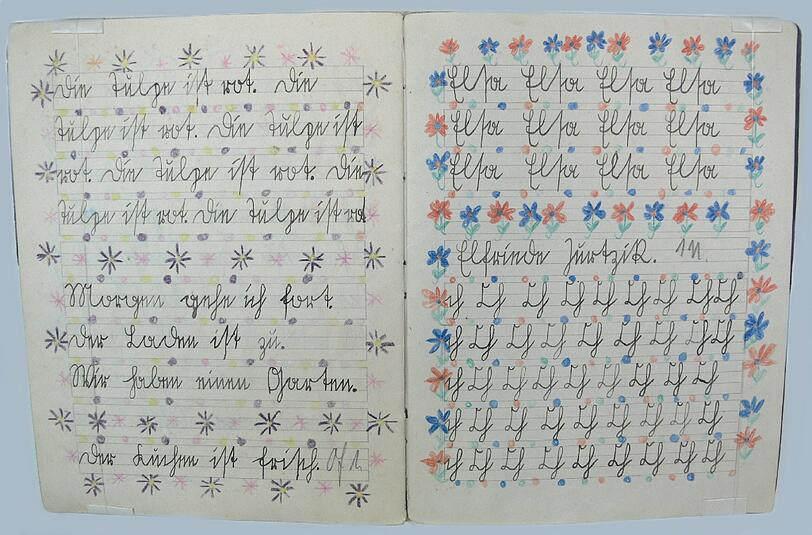 Die Tulpe ist rot. Die
Tulpe ist rot. Die Tulpe ist
rot. Die Tulpe ist rot. Die
Tulpe ist rot. Die Tulpe ist ro
Morgen gehe ich fort.
Der Laden ist zu.
Wir haben einen Garten.
Der Kuchen ist frisch.
Elsa Elsa Elsa Elsa
Elsa Elsa Elsa Elsa
Elsa Elsa Elsa Elsa
Elfriede Jurtzik.
ch Ch Ch Ch Ch Ch Ch Ch Ch
ch Ch Ch Ch Ch Ch Ch Ch Ch
ch Ch Ch Ch Ch Ch Ch Ch
ch Ch Ch Ch Ch Ch Ch Ch
ch Ch Ch Ch Ch Ch Ch Ch